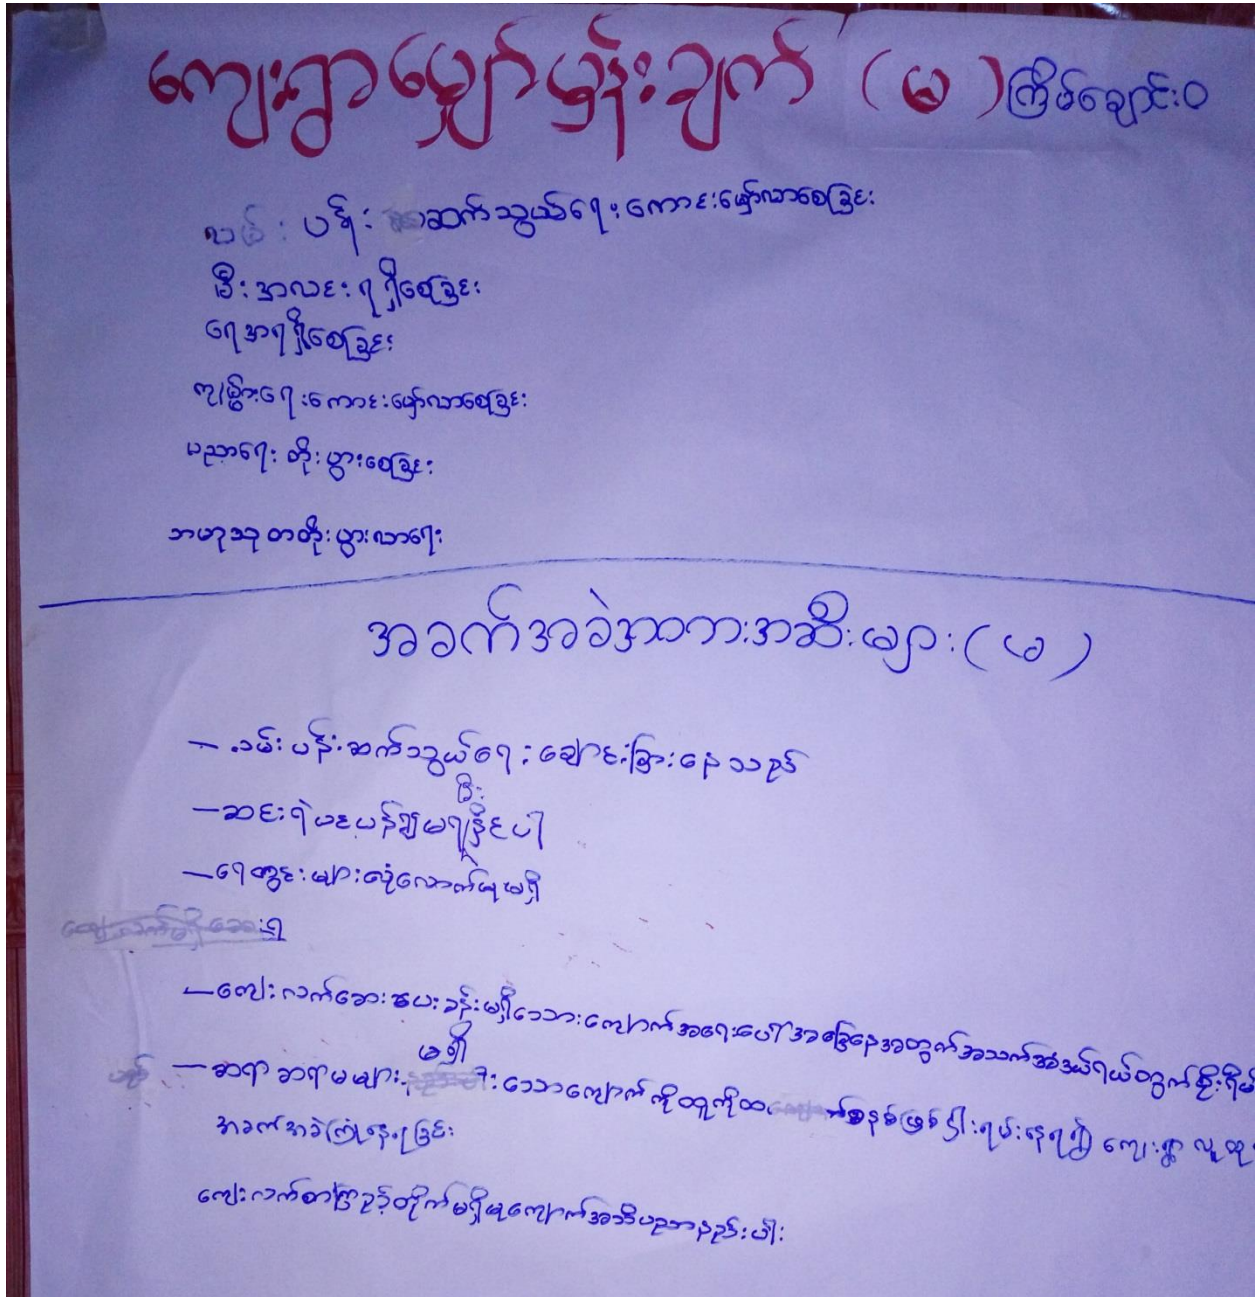 ကျေးရွာမျှော်မှန်းချက် (မ) ကြိမ်ချောင်းဝ
လမ်း ပန်း ဆက်သွယ်ရေး ကောင်းမျှော်လာစေခြင်း
မီးအလင်းရရှိစေခြင်း
ရေအရရှိစေခြင်း
ကျမ္မာရေးကောင်းမျှော်လာစေခြင်း
ပညာရေး တိုးပွားစေခြင်း
ဘဟုသုတတိုးပွားလာရေး
အခက်အခဲအတားအဆီးများ (မ)
– လမ်းပန်းဆက်သွယ်ရေး ချောင်းခြားနေသည်
မီး
– ဆင်းရဲ မရနိုင်ပါ
– ရေတွင်းများလုံလောက်မှုမရှိ
– ကျေးလက်ဆေးပေးခန်းမရှိသေားကျောက်အရေးပေါ်အခြေနေအတွက်အသက်အန္ဒယ်ရယ်တွက်စိုးရိမ်
မရှိ
– ဆရာ ဆရာမများ ကိုထူကိုထ ကျေးရွာ လူထု
အခက်အခဲကြုံနေရခြင်း
ကျေးလက်စာကြည့်တိုက်မရှိမှုကျောက်အသိပညာနည်းပါး